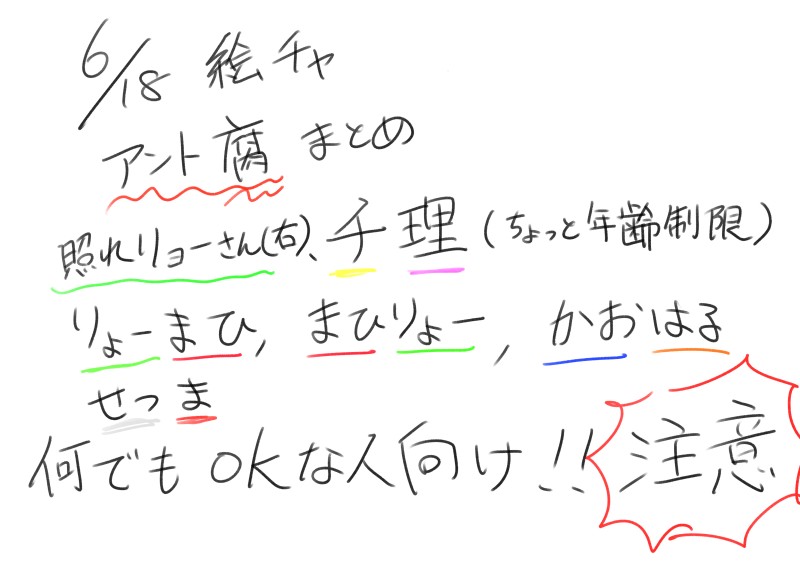 6/18 絵チャ
アント腐 まとめ
照れリョーさん(右)、千理(ちょっと年齢制限)
りょーまひ, まひりょー, かおはる
せつま
何でもOKな人向け!! 注意